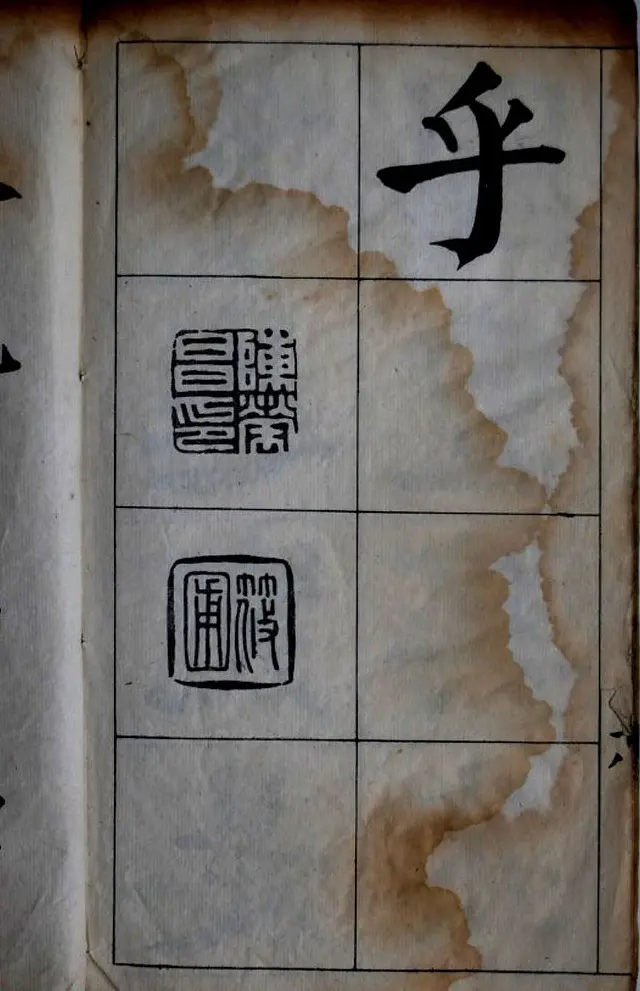 乎
陳榮昌印
筱圃